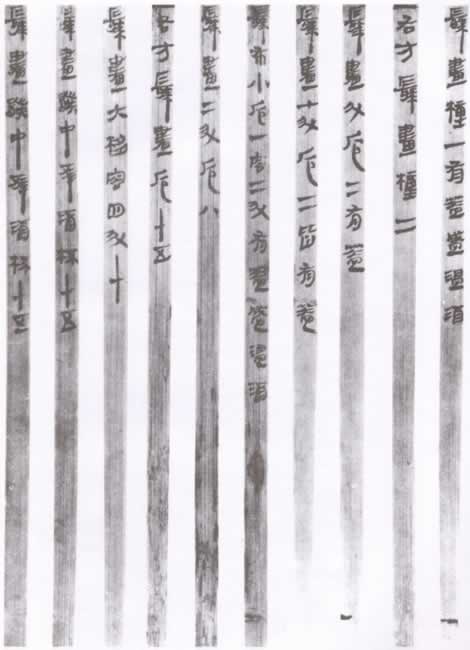 髹畫橦一有蓋盛溫酒
右方髹畫橦二
髹畫斗卮二有蓋
髹畫七升卮二皆有蓋
髹布小卮一容二升有蓋盛溫酒
髹畫二升卮八
右方髹畫卮十五
髹畫大移容四升十
髹畫中幸酒杯十五
髹畫中幸酒杯十五